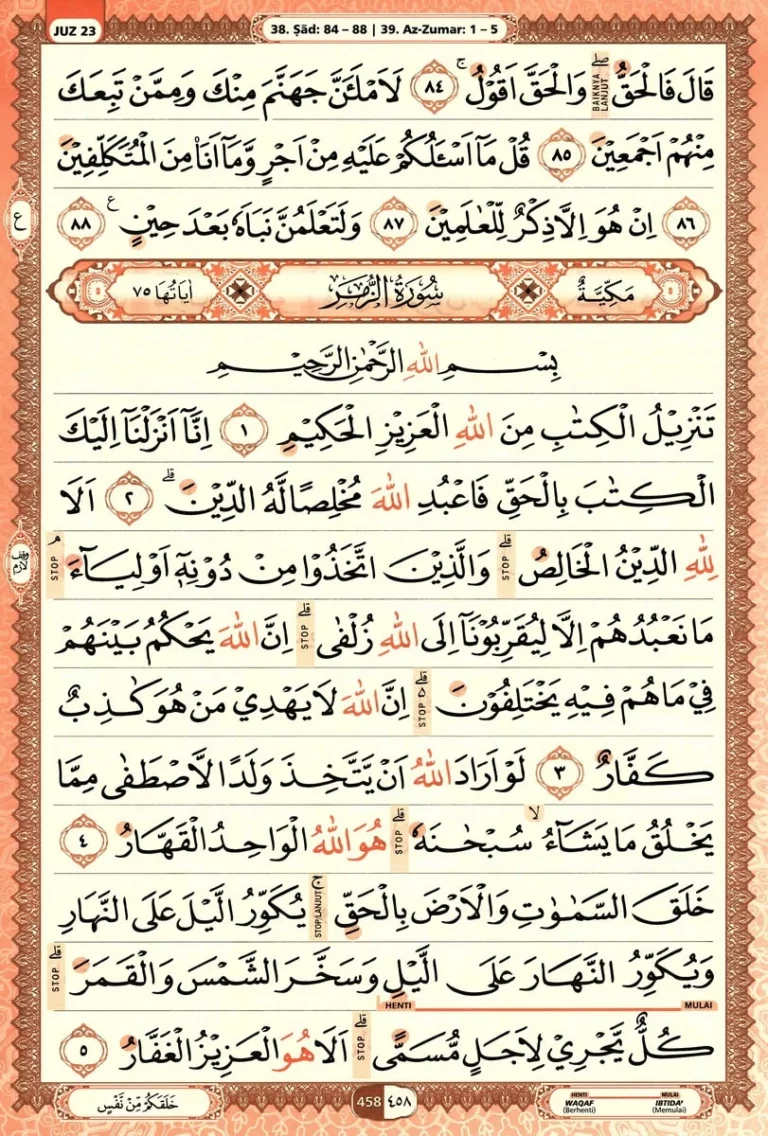 JUZ 23
38. Ṣād: 84 – 88 | 39. Az-Zumar: 1 – 5
قَالَ فَالْحَقُّۖ وَالْحَقَّ اَقُوْلُۚ ٨٤ لَاَمْلَـَٔنَّ جَهَنَّمَ مِنْكَ وَمِمَّنْ تَبِعَكَ
BAIKNYA LANJUT
مِنْهُمْ اَجْمَعِيْنَ ٨٥ قُلْ مَآ اَسْـَٔلُكُمْ عَلَيْهِ مِنْ اَجْرٍ وَّمَآ اَنَا۠ مِنَ الْمُتَكَلِّفِيْنَ
٨٦ اِنْ هُوَ اِلَّا ذِكْرٌ لِّلْعٰلَمِيْنَ ٨٧ وَلَتَعْلَمُنَّ نَبَاَهٗ بَعْدَ حِيْنٍ ع ٨٨
ع
مَكِّيَّةٌ سُوْرَةُ الزُّمَرِ اٰيَاتُهَا ٧٥
بِسْمِ اللّٰهِ الرَّحْمٰنِ الرَّحِيْمِ
تَنْزِيْلُ الْكِتٰبِ مِنَ اللّٰهِ الْعَزِيْزِ الْحَكِيْمِ ١ اِنَّآ اَنْزَلْنَآ اِلَيْكَ
الْكِتٰبَ بِالْحَقِّ فَاعْبُدِ اللّٰهَ مُخْلِصًا لَّهُ الدِّيْنَۗ ٢ اَلَا
لِلّٰهِ الدِّيْنُ الْخَالِصُۗ STOP وَالَّذِيْنَ اتَّخَذُوْا مِنْ دُوْنِهٖٓ اَوْلِيَاۤءَۘ STOP
وقف لازم
مَا نَعْبُدُهُمْ اِلَّا لِيُقَرِّبُوْنَآ اِلَى اللّٰهِ زُلْفٰىۗ STOP اِنَّ اللّٰهَ يَحْكُمُ بَيْنَهُمْ
فِيْ مَا هُمْ فِيْهِ يَخْتَلِفُوْنَۗ STOP اِنَّ اللّٰهَ لَا يَهْدِيْ مَنْ هُوَ كٰذِبٌ
كَفَّارٌ ٣ لَوْ اَرَادَ اللّٰهُ اَنْ يَّتَّخِذَ وَلَدًا لَّاصْطَفٰى مِمَّا
يَخْلُقُ مَا يَشَاۤءُۙ سُبْحٰنَهٗۗ STOP هُوَ اللّٰهُ الْوَاحِدُ الْقَهَّارُ ٤
خَلَقَ السَّمٰوٰتِ وَالْاَرْضَ بِالْحَقِّۚ STOP/LANJUT يُكَوِّرُ الَّيْلَ عَلَى النَّهَارِ
وَيُكَوِّرُ النَّهَارَ عَلَى الَّيْلِ وَسَخَّرَ الشَّمْسَ وَالْقَمَرَۗ STOP
HENTI MULAI
كُلٌّ يَّجْرِيْ لِاَجَلٍ مُّسَمًّىۗ STOP اَلَا هُوَ الْعَزِيْزُ الْغَفَّارُ ٥
خَلَقَكُمْ مِّنْ نَّفْسٍ
458 ٤٥٨
HENTI MULAI
WAQAF IBTIDA'
(Berhenti) (Memulai)